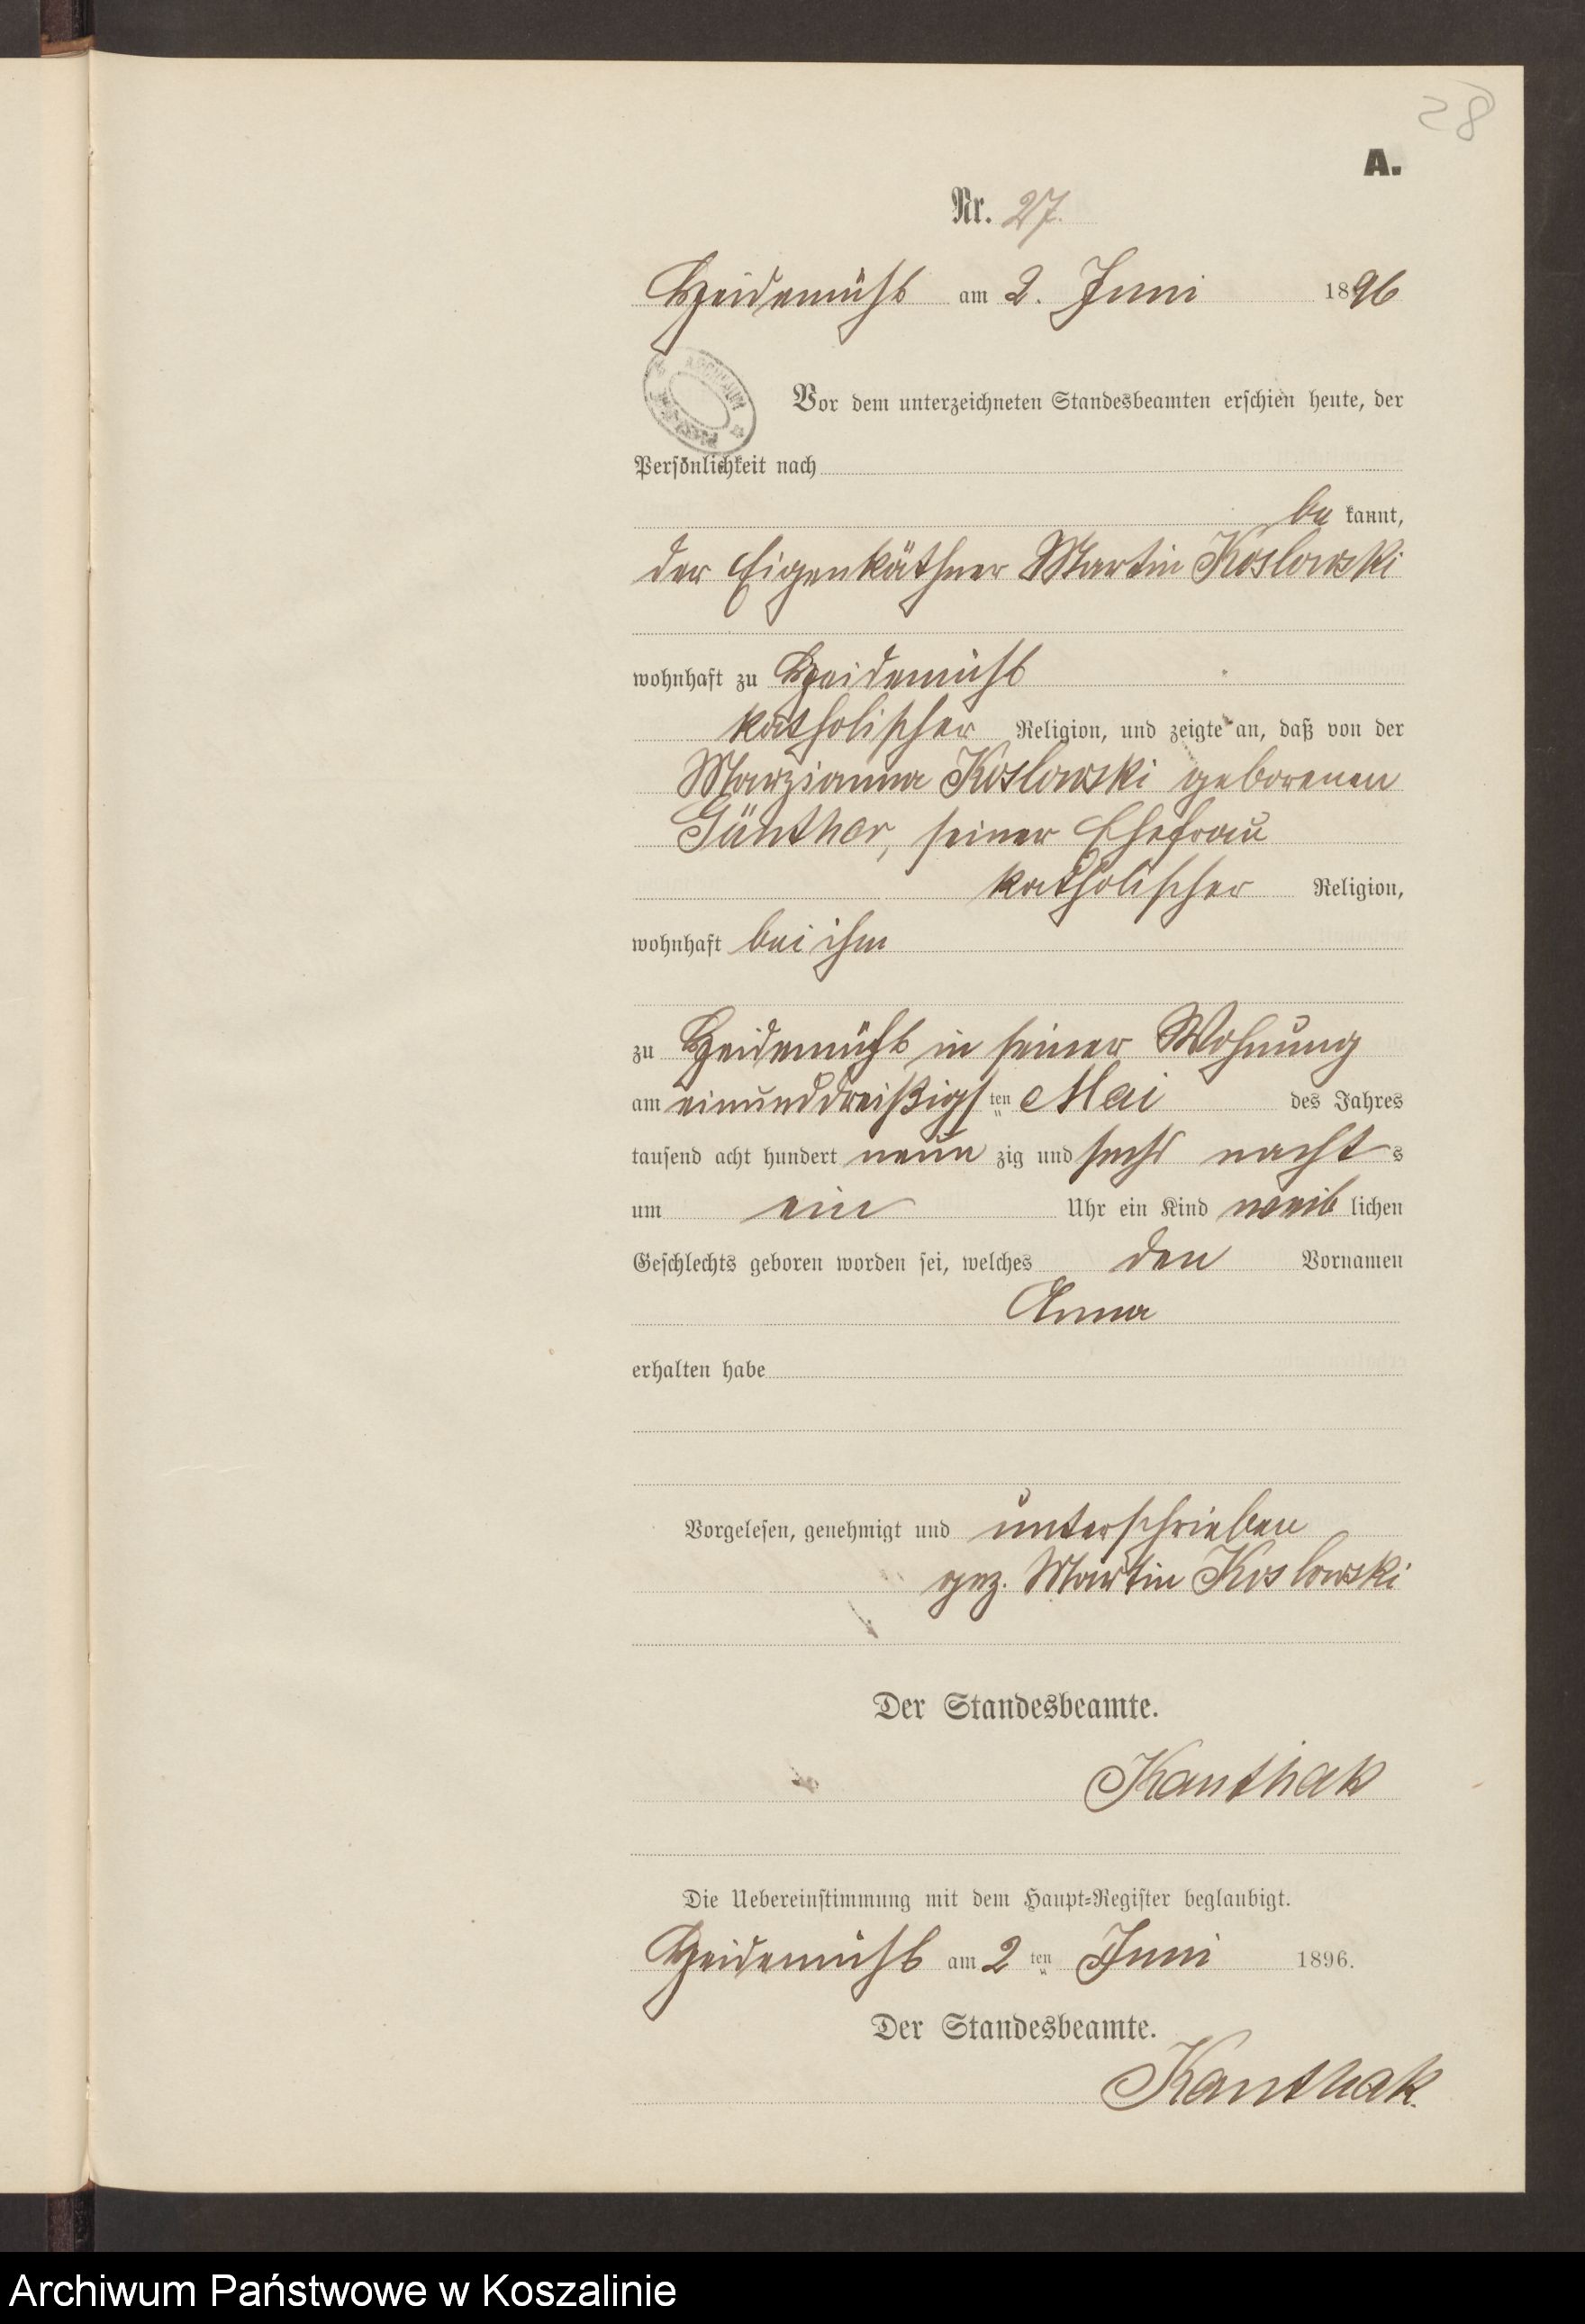 28
A.
Nr. 27.
Heidemühl am 2. Juni 1896
Vor dem unterzeichneten Standesbeamten erschien heute, der
Persönlichkeit nach
be kannt,
der Eigenkäthner Martin Koslowski
wohnhaft zu Heidemühl
katholischer Religion, und zeigte an, daß von der
Marzianna Koslowski geborenen
Günther, seiner Ehefrau
katholischer Religion,
wohnhaft bei ihm
zu Heidemühl in seiner Wohnung
am einunddreißigsten Mai des Jahres
tausend acht hundert neun zig und sechs nachts
um ein Uhr ein Kind weib lichen
Geschlechts geboren worden sei, welches den Vornamen
Anna
erhalten habe
Vorgelesen, genehmigt und unterschrieben
gez. Martin Koslowski
Der Standesbeamte.
Kanthak
Die Uebereinstimmung mit dem Haupt-Register beglaubigt.
Heidemühl am 2 ten Juni 1896.
Der Standesbeamte.
Kanthak.
Archiwum Państwowe w Koszalinie